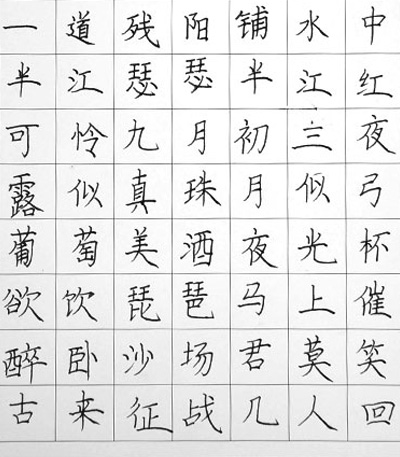 一道残阳铺水中
半江瑟瑟半江红
可怜九月初三夜
露似真珠月似弓
葡萄美酒夜光杯
欲饮琵琶马上催
醉卧沙场君莫笑
古来征战几人回